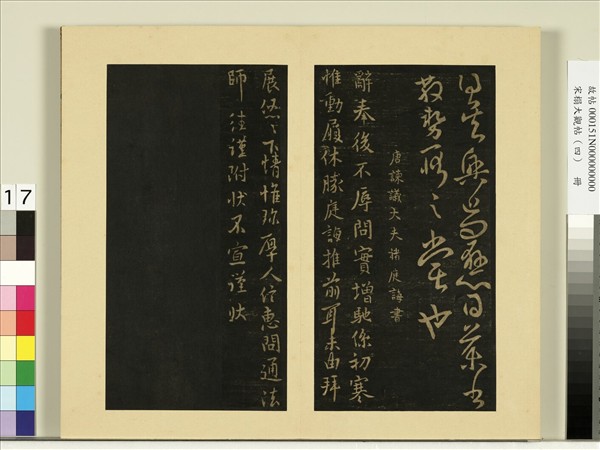 故帖 000151N000000000
宋榻大觀帖（四） 冊
唐諫議大夫褚庭誨書
辭奉後不辱問實增馳係初寒
惟動履休勝庭誨推前耳未由拜
展悠〻下情惟珍厚人信惠問通法
師往謹附狀不宣謹狀
17